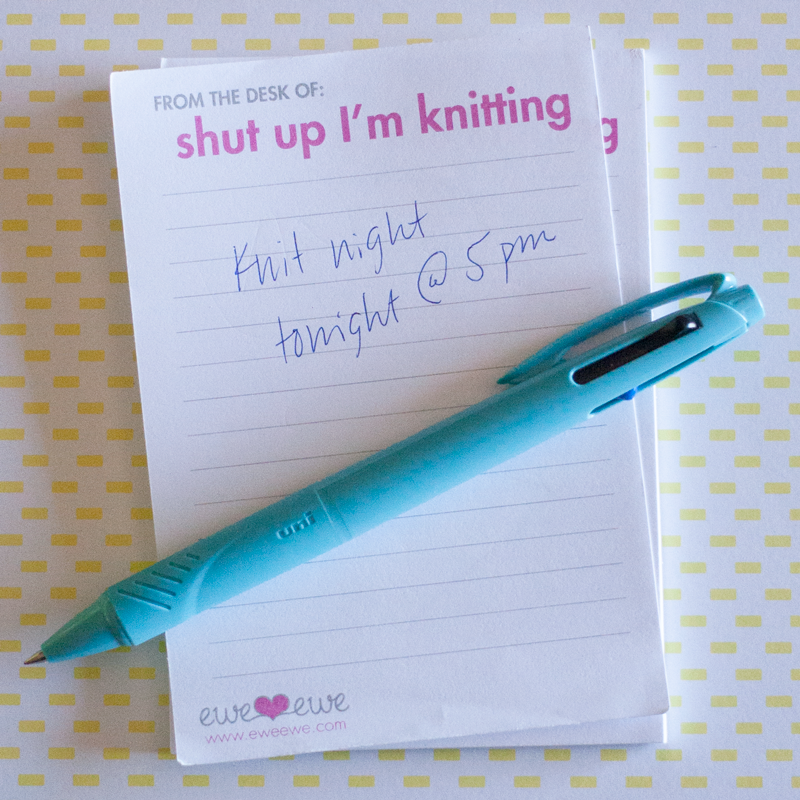 FROM THE DESK OF:
shut up I'm knitting
g
Knit night
tonight @ 5 pm
uni
ewe ewe
www.eweewe.com